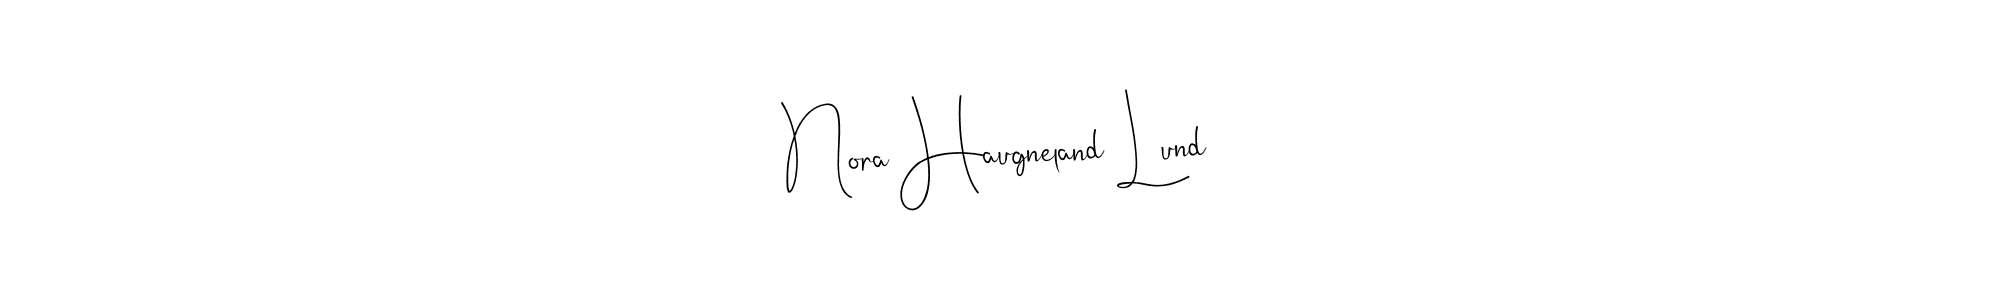 Nora Haugneland Lund